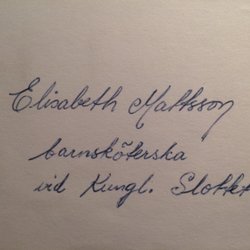 Elisabeth Mattsson
barnsköterska
vid Kungl. Slottet